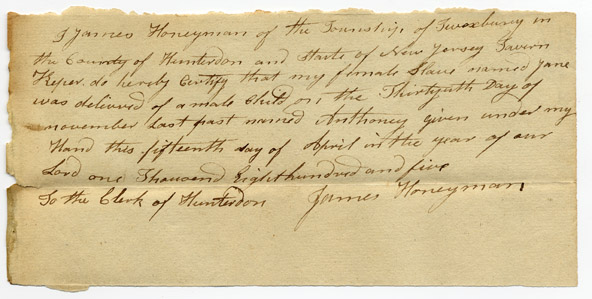 I James Honeyman of the Township of Tewxbury in
the County of Hunterdon and State of New Jersey Tavern
Keper do hereby Certify that my female Slave named Jane
was delivered of a male Child on the Thirtyeth Day of
november Last past named Anthoney given under my
Hand this fifteenth day of April in the year of our
Lord one Thousand Eight hundred and five
To the Clerk of Hunterdon James Honeyman